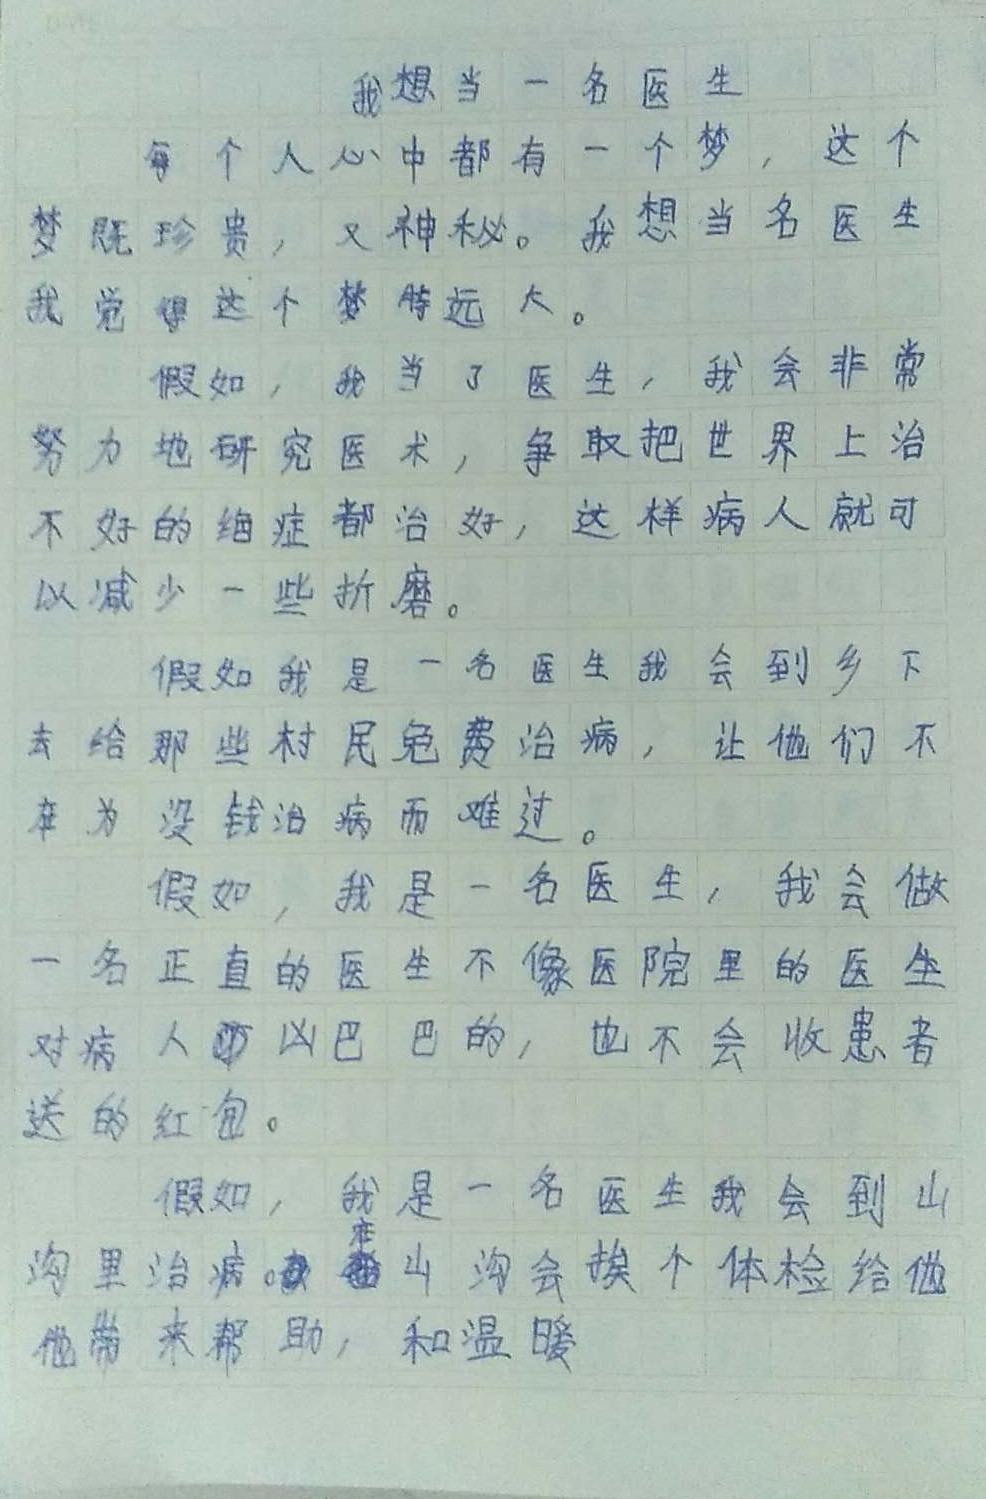 我想当一名医生
每个人心中都有一个梦，这个
梦既珍贵，又神秘。我想当名医生
我觉得这个梦特远大。
假如，我当了医生，我会非常
努力地研究医术，争取把世界上治
不好的绝症都治好，这样病人就可
以减少一些折磨。
假如我是一名医生我会到乡下
去给那些村民免费治病，让他们不
在为没钱治病而难过。
假如，我是一名医生，我会做
一名正直的医生不像医院里的医生
对病人凶巴巴的，也不会收患者
送的红包。
假如，我是一名医生我会到山
沟里治病。在山沟会挨个体检给他
他带来帮助，和温暖